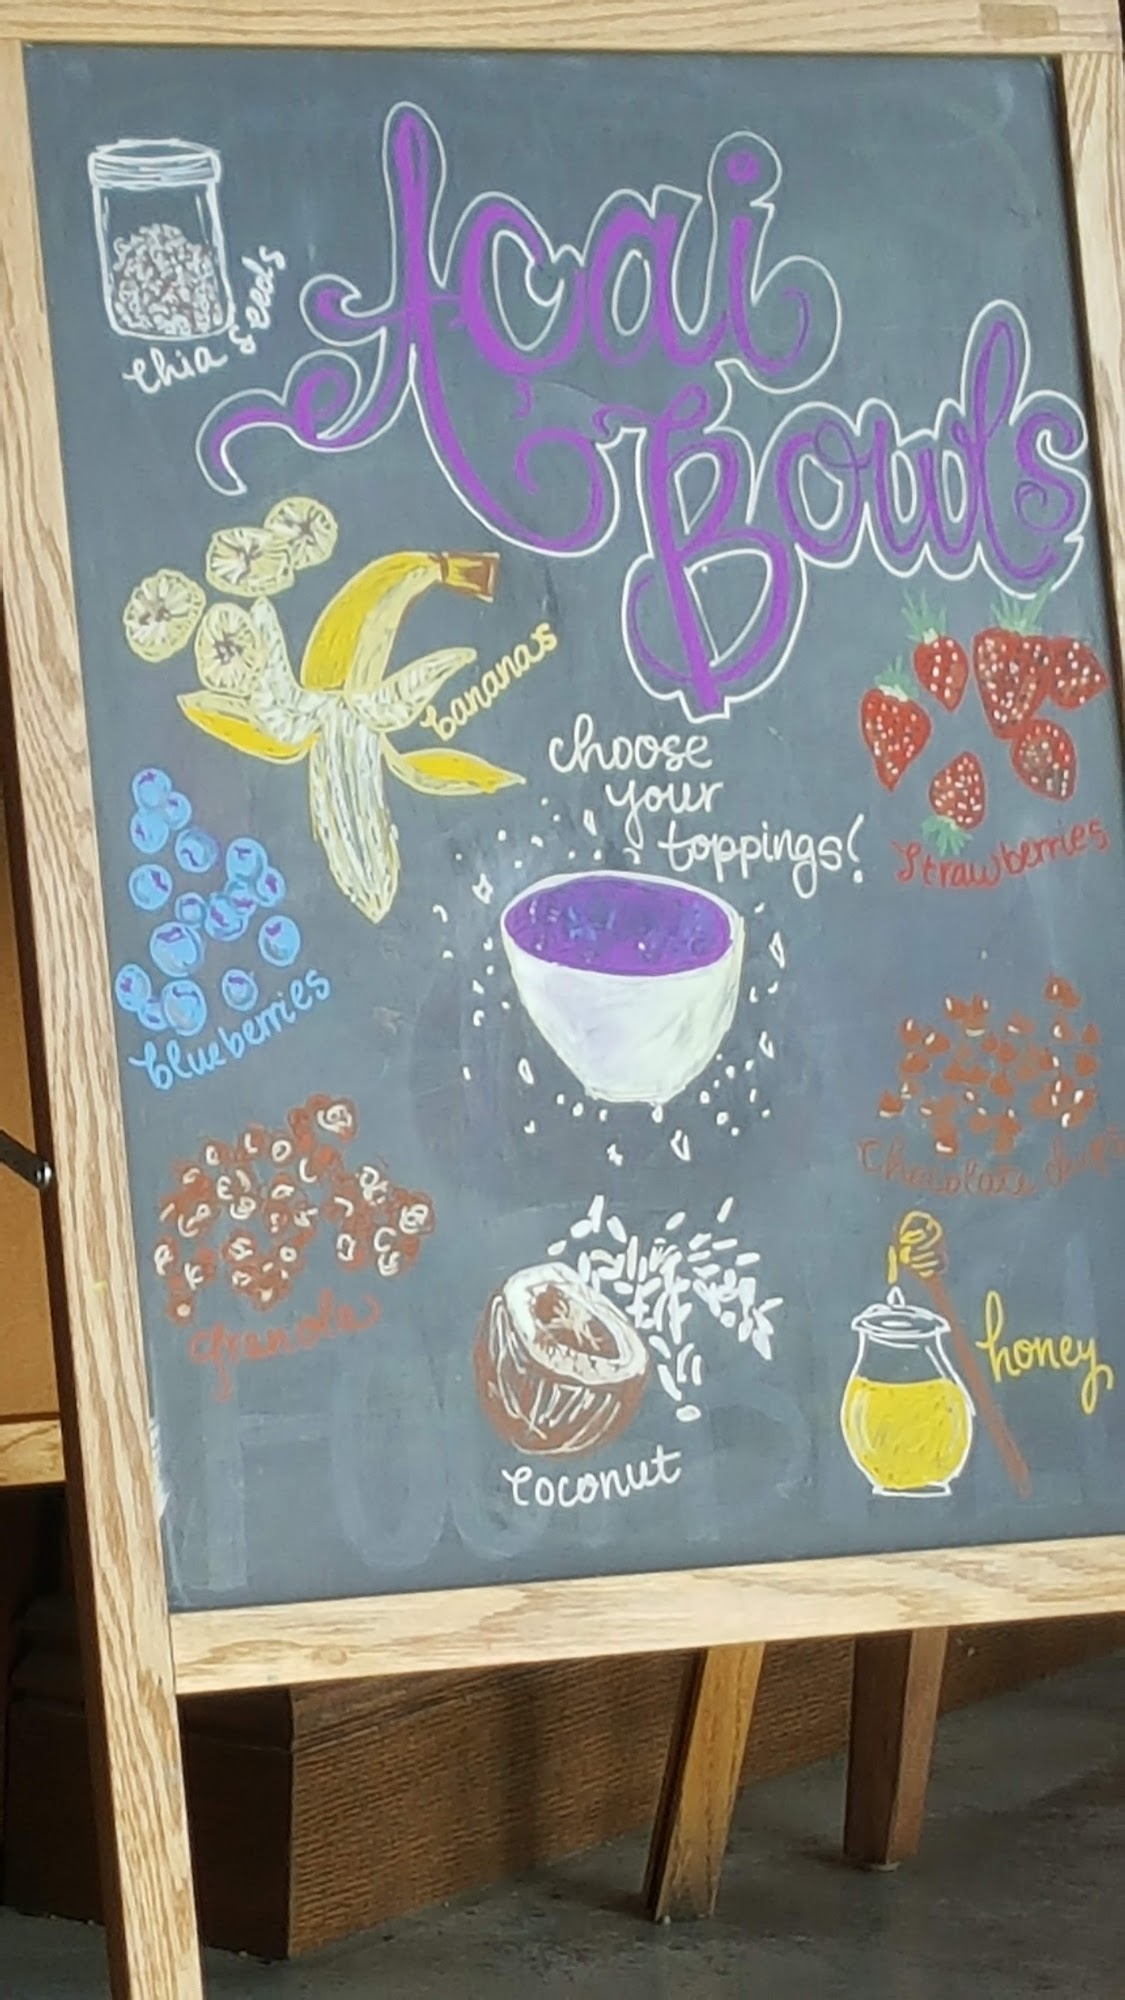 chia seeds
Açai
Bowls
bananas
choose
your
toppings!
Strawberries
blueberries
Chocolate chips
granola
honey
coconut